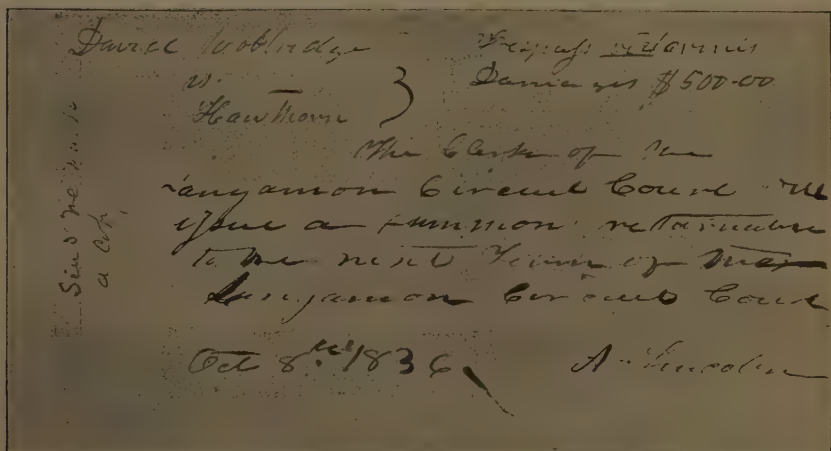 David Wooldridge Trespass vi et armis
vs. Damages $500-00
Hawthorn
The Clerk of the
Sangamon Circuit Court will
issue a summon returnable
to the next Term of the
Sangamon Circuit Court
Oct 8th 1836 A. Lincoln
Send me
a